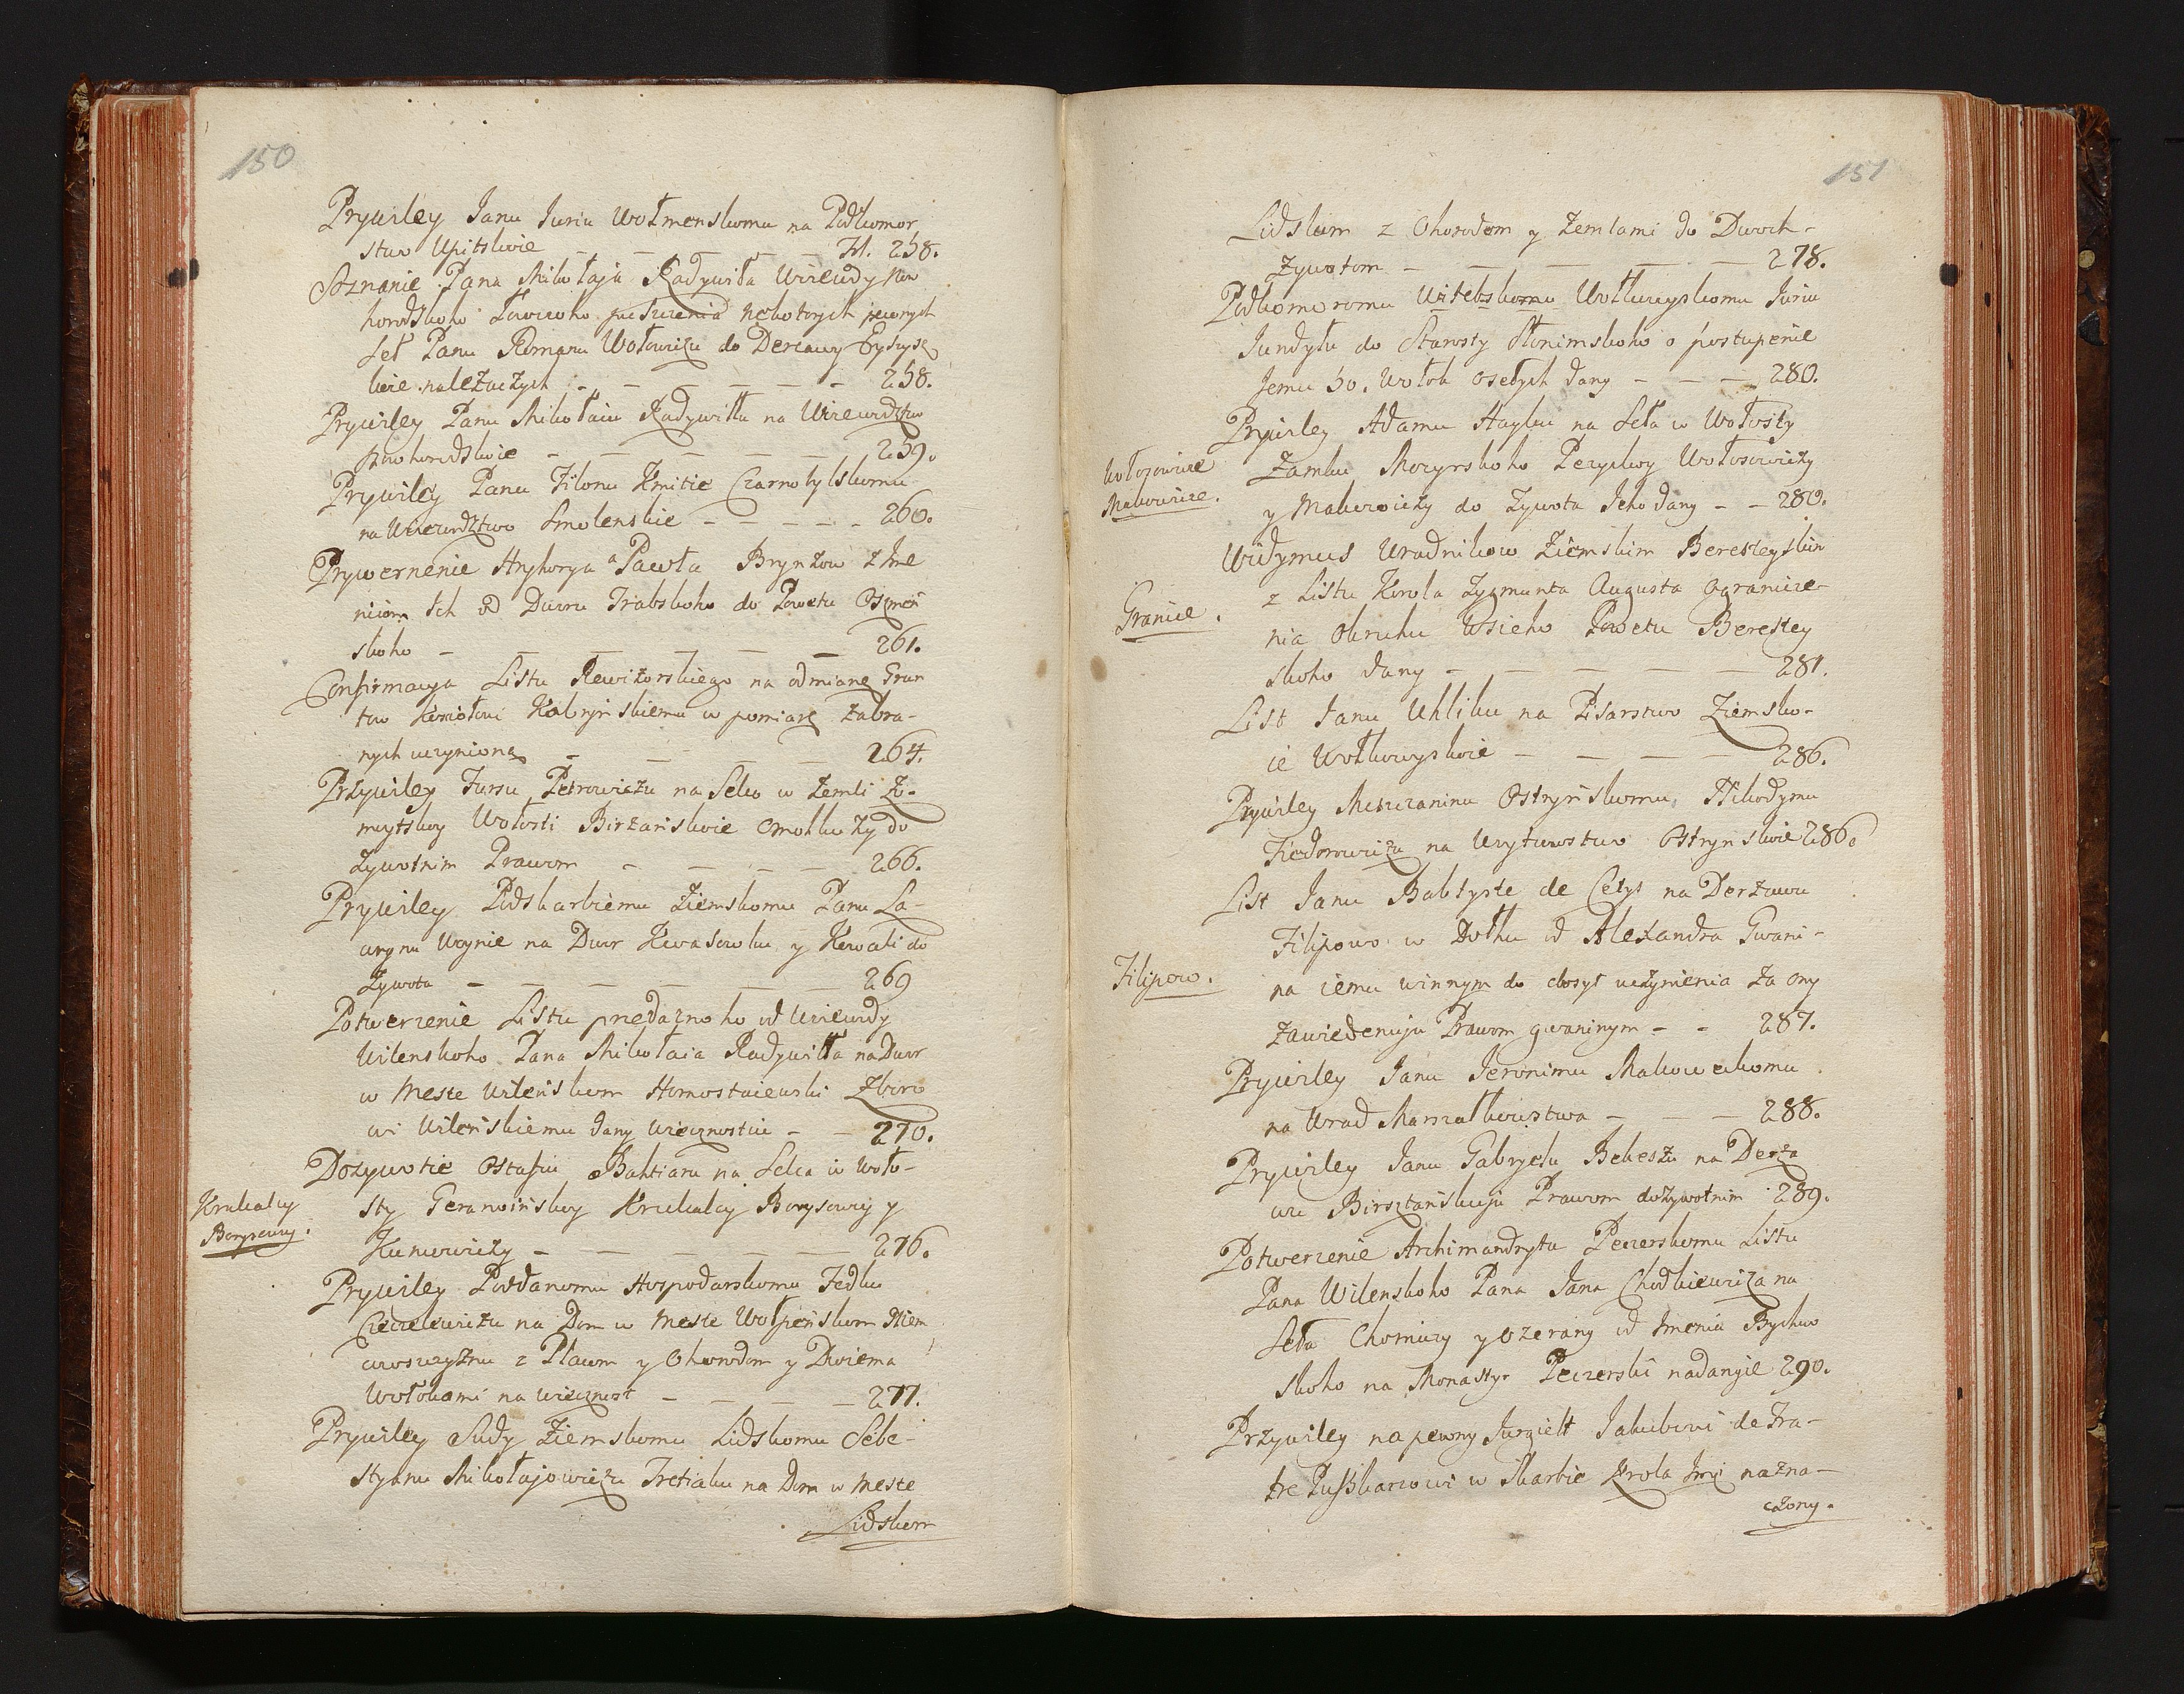 150
Prywiley Janu Juriu Wołmenskomu na Podkomor
stwo Upitskoie - - - - fol. 258.
Soznanie Pana Mikołaja Radywiła Wiiewdy Now
horodskoho Ławicoho puszczenia nekotorych pewnych
seł Panu Romanu Wołowiczu do Derzawy
koie należaczych - - - - - - 258.
Prywiley Panu Mikołaiu Radywiłłu na Wiiewodztwo
Nowhorodskoie - - - - - 259.
Prywiley Panu Filonu Kmitie Czarnobylskomu
na Wiiewodztwo Smolenskie - - - - - 260.
Prywernenie Hryhorya a Pawła Brynzow z Ime
niiom Ich od Dworu Trabskoho do Powetu Oszmeń
skoho - - - - - - 261.
Confirmacya Listu Rewizorskiego na odmianę Grun
tow Kosciołowi Kobryńskiemu w pomiarę zabra-
nych uczynioną - - - - 264.
Przywiley Jursu Petrowiczu na Selco w Zemli Żo-
moytskoy Wołosti Birżanskoie do
Żywotnim Prawom - - - - 266.
Prywiley Podskarbiemu Ziemskomu Panu Ła-
wrynu Woynie na Dwor Kwasowku y Kowali do
Żywota - - - - - - 269
Potwerzenie Listu predażnoho od Wiiewody
Wilenskoho Pana Mikołaia Radywiłła na Dwor
w Meste Wilenskom Homostaiewski Zboro
wi Wileńskiemu dany wiecznostiu - - 270.
Dożywotie Ostafiu Bahtiaru na Selca w Woło-
Krukalcy
Borysowcy.
sty Geranoińskoy Krukalcy Borysowcy y
Kunowiczy - - - - - - 276.
Prywiley Poddanomu Hospodarskomu Fedku
Cieciekowiczu na Dom w Meste Wołpeńskom Niem
z Placom y Ohorodom y Dwiema
Wołokami na wieczność - - - - 277.
Prywiley Sudy Ziemskomu Lidskomu Sebe-
styanu Mikołajowiczu Tretiaku na Dom w Meste
Lidskom
151
Lidskom z Ohorodom y Zemlami do Dwoch-
Żywotom - - - - - - 278.
Podkomoromu Witebskomu Wołkowyskomu Juriu
Jundyłu do Starosty Słonimskoho o postupenie
Jemu 50. Wołok osełych dany - - - 280.
Prywiley Adamu Hayku na Seła w Wołosty
Wołosowicze
Makowicze.
Zamku Mozyrskoho Wołosowiczy
y Makowiczy do Żywota Jeho dany - - 280.
Widymus Uradnikow Ziemskim Beresteyskim
z Listu Korola Zygmunta Augusta Ograniczе-
Granice.
nia Okruhu wsieho Powetu Berestey
skoho dany - - - - - 281.
List Janu Uhliku na Pisarstwo Ziemsko-
ie Wołkowyskoie - - - - 286.
Prywiley Meszczaninu Ostryńskomu, Nikodymu
Fiedorowiczu na Woytowstwo Ostrynskoie 286.
List Janu Babtyste de Cetys na Derżawu
Filipowo w Dołhu od Alexandra Gwani-
Filipow.
na iemu winnym do dosyt uczynienia za ony
zawiedenuju Prawom gwaninym - - 287.
Prywiley Janu Jeronimu Makoweckomu
na Urad Marszałkowstwa - - - 288.
Prywiley Janu Gabryelu Bekeszu na Derża
wu Birsztańskuju Prawom dożywotnim 289.
Potwerzenie Archimandrytu Peczerskomu Listu
Pana Wilenskoho Pana Jana Chodkiewicza na
Seła Chomiczy y Ozerany od Imenia Bychow
skoho na Monastyr Peczerski nadanyie 290.
Przywiley na pewny Jurgielt Jakubowi de Fra-
tre Puszkarzowi w Skarbie Krola Jmci nazna-
czony.